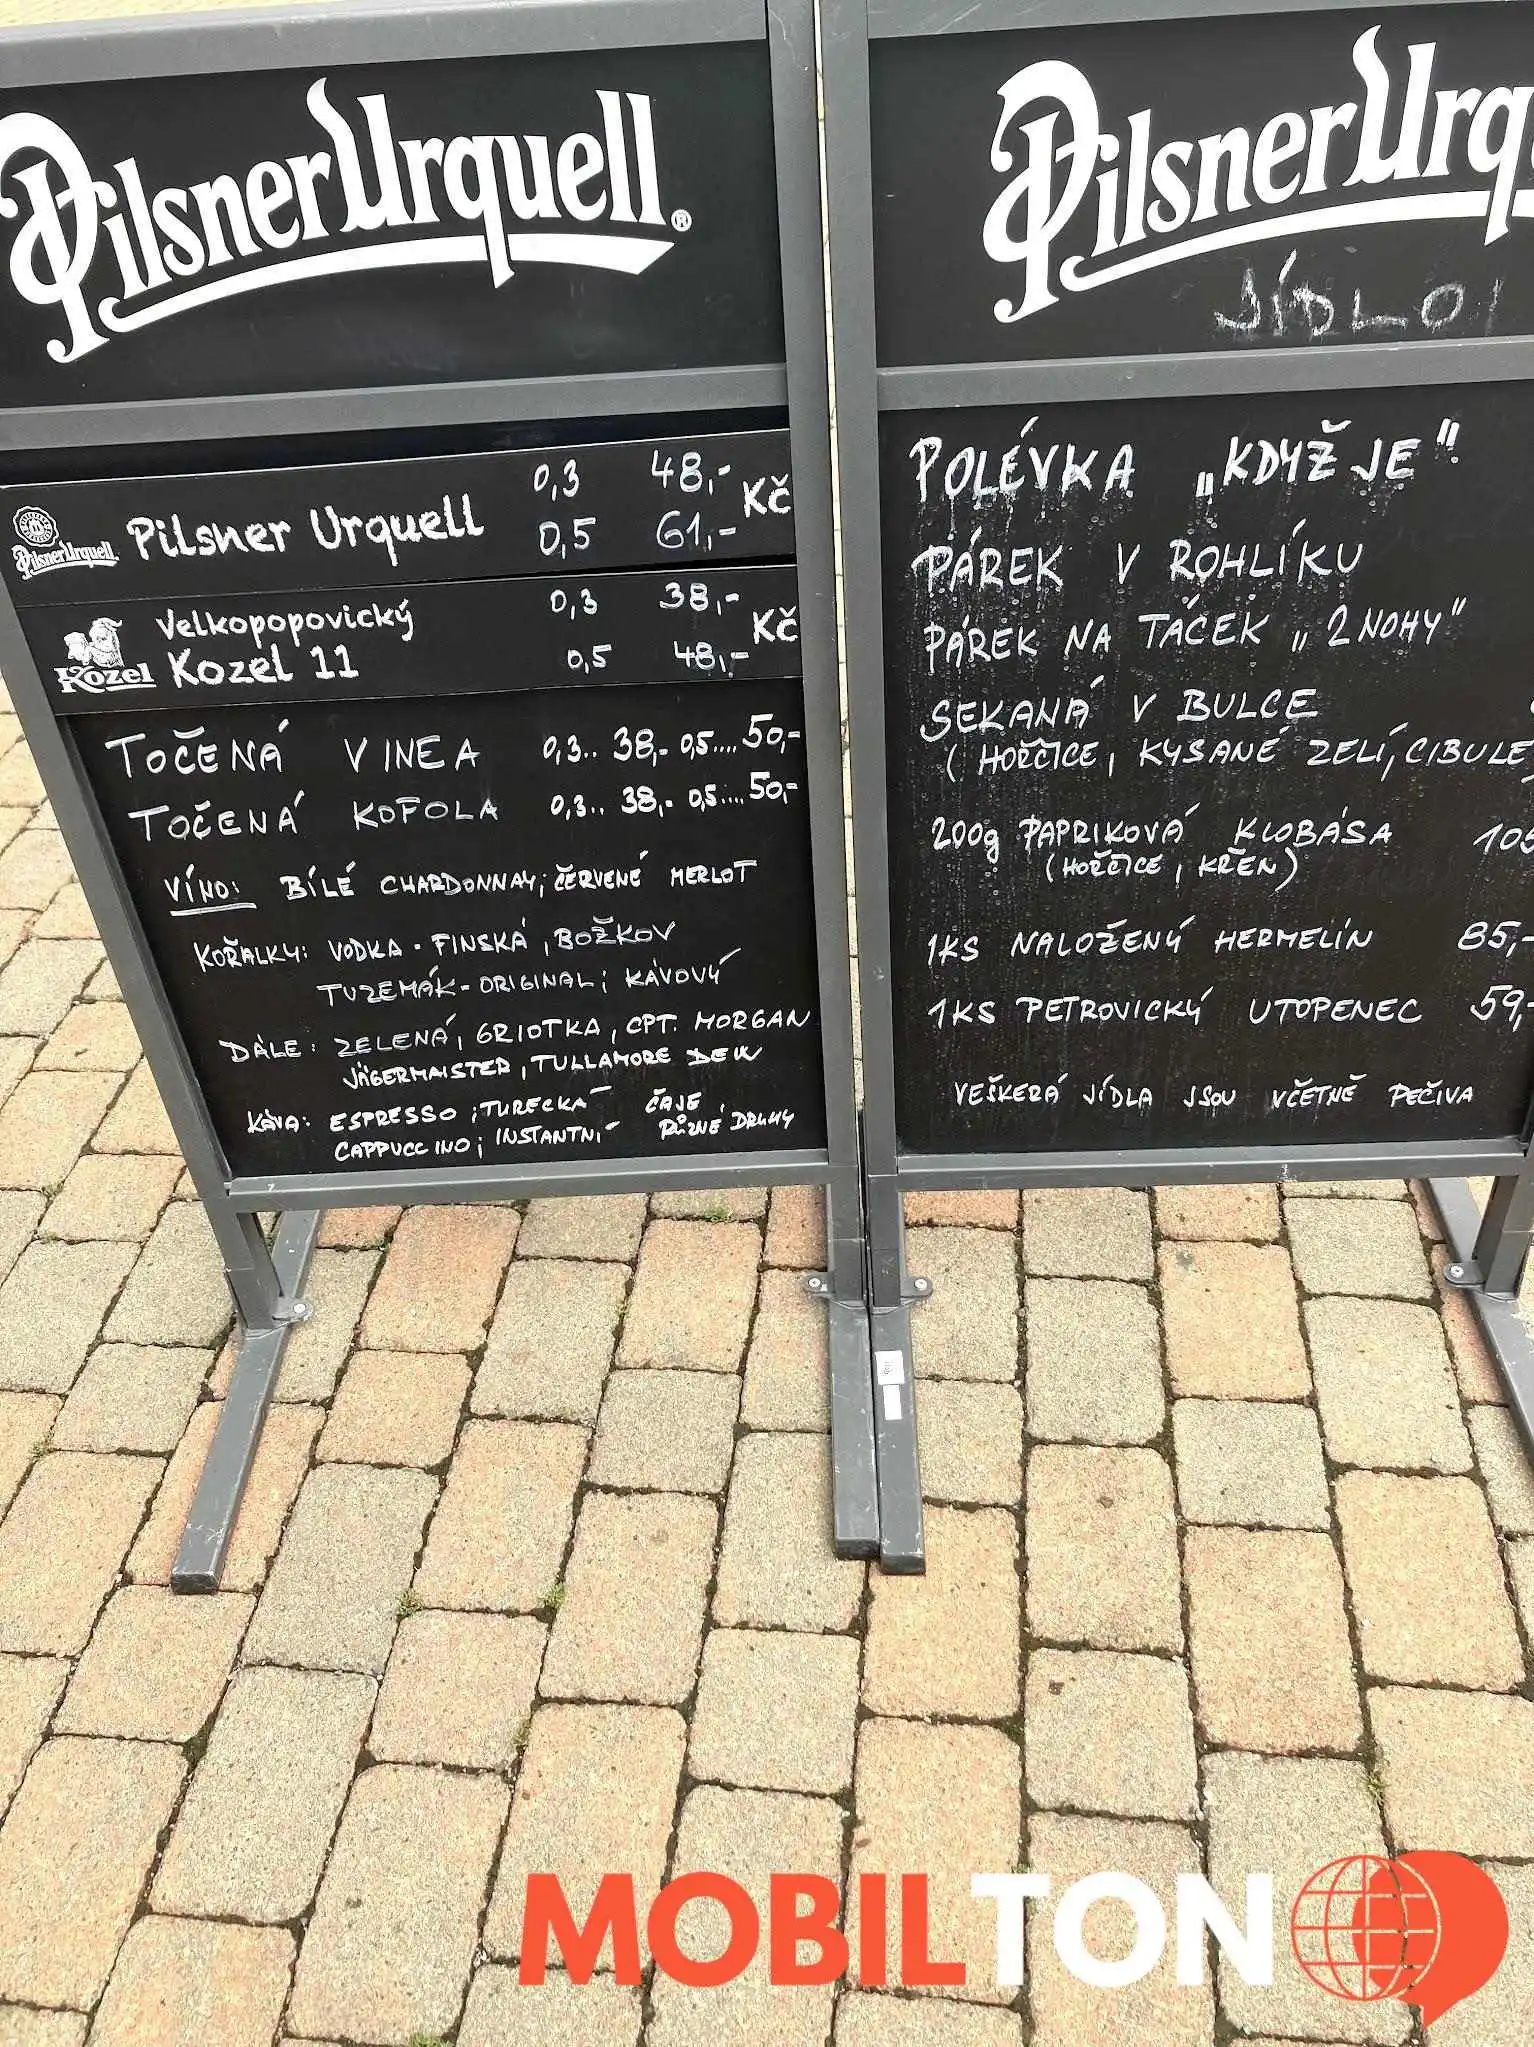 Pilsner Urquell ®
Pilsner Urquell Pilsner Urquell 0,3 48,- Kč
0,5 61,-
Kozel Velkopopovický 0,3 38,- Kč
Kozel 11 0,5 48,-
TOČENÁ VINEA 0,3.. 38,- 0,5.... 50,-
TOČENÁ KOFOLA 0,3.. 38,- 0,5.... 50,-
VÍNO: BÍLÉ CHARDONNAY; ČERVENÉ MERLOT
KOŘALKY: VODKA - FINSKÁ, BOŽKOV
TUZEMÁK - ORIGINAL; KÁVOVÝ
DÁLE: ZELENÁ, GRIOTKA, CPT. MORGAN
JÄGERMAISTER, TULLAMORE DEW
KÁVA: ESPRESSO; TURECKÁ ČAJE
CAPPUCCINO; INSTANTNÍ RŮZNÉ DRUHY
Pilsner Urq
JÍDLO!
POLÉVKA „KDYŽ JE"!
PÁREK V ROHLÍKU
PÁREK NA TÁCEK „2 NOHY"
SEKANÁ V BULCE
(HOŘČICE, KYSANÉ ZELÍ, CIBULE
200g PAPRIKOVÁ KLOBÁSA 105
(HOŘČICE, KŘEN)
1KS NALOŽENÝ HERMELÍN 85,-
1KS PETROVICKÝ UTOPENEC 59,-
VEŠKERÁ JÍDLA JSOU VČETNĚ PEČIVA
MOBILTON